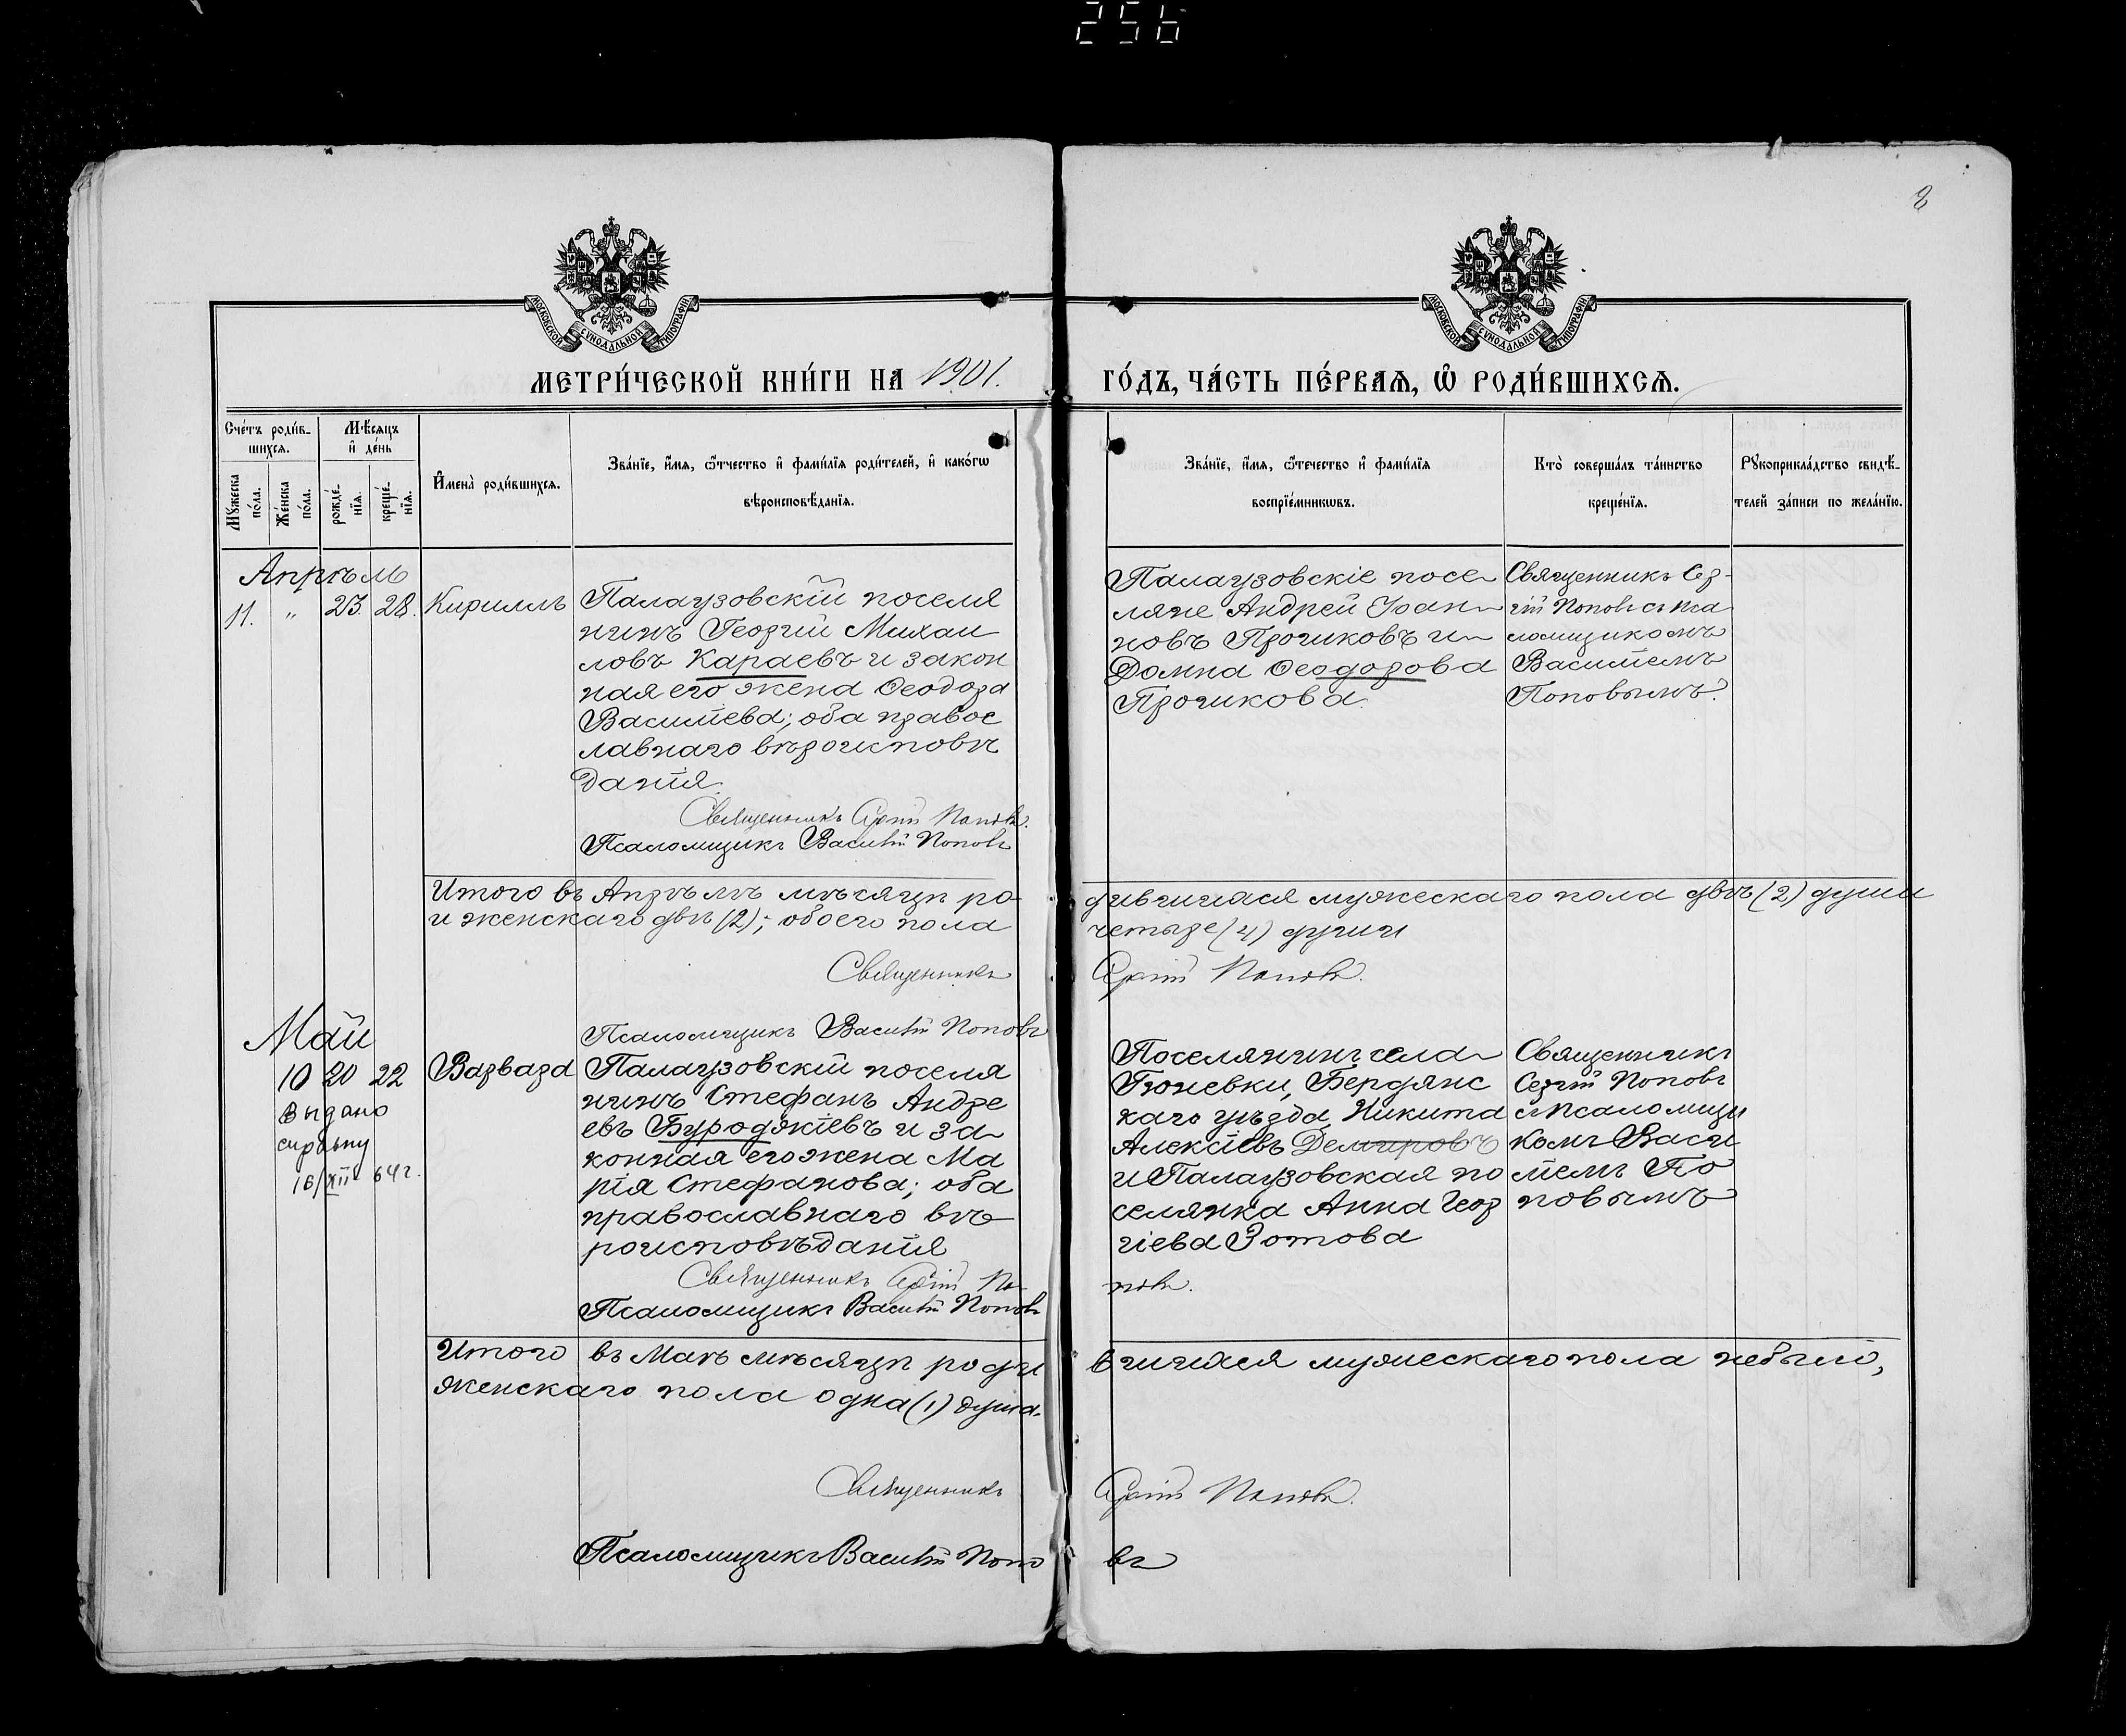 256
8
МОСКОВСКОЙ СУНОДАЛЬНОЙ ТИПОГРАФІИ
МОСКОВСКОЙ СУНОДАЛЬНОЙ ТИПОГРАФІИ
МЕТРИ́ЧЕСКОЙ КНИ́ГИ НА 1901.
ГО́ДЪ, ЧА́СТЬ ПЕ́РВАѦ, Ѡ҆ РОДИ́ВШИХСѦ.
Сче́тъ роди́в-
шихся.
Мѣ́сяцъ
и҆ де́нь
Мꙋ́жеска
по́ла.
Же́нска
по́ла.
рожде́-
нїя.
креще́-
нїя.
И҆мена̀ роди́вшихся.
Зва́нїе, и҆́мя, ѻ҆́тчество и҆ фами́лїя роди́телей, и҆ како́гѡ
вѣроисповѣ́данїя.
Зва́нїе, и҆́мя, ѻ҆́течество и҆ фами́лїя
воспрїе́мникѡвъ.
Кто̀ соверша́лъ та́инство
креще́нїя.
Рꙋкоприкла́дство свидѣ́-
телей за́писи по жела́нїю.
Апрѣль
11. " 23. 28. Кириллъ
Палаузовскій поселя
нинъ Георгій Михаи
ловъ Караевъ и закон
ная его жена Ѳеодора
Васильева; оба правос
лавнаго вѣроисповѣ
данія.
Священникъ Сергій Поповъ.
Псаломщикъ Василій Поповъ
Палаузовскіе посе
ляне Андрей Іоан
новъ Прочиковъ и
Домна Ѳеодорова
Прочикова.
Священникъ Сер-
гій Поповъ съ пса
ломщикомъ
Василіемъ
Поповымъ.
Итого въ Апрѣлѣ мѣсяцѣ ро-
дившихся мужескаго пола двѣ (2) души
и женскаго двѣ (2); обоего пола
четыре (4) души
Священникъ
Сергій Поповъ.
Псаломщикъ Василій Поповъ
Май
10 20 22 Варвара
Выдано
справку
16/XII 64 г.
Палаузовскій поселя
нинъ Стефанъ Андре
евъ Буроджіевъ и за
конная его жена Ма
рія Стефанова; оба
православнаго вѣ
роисповѣданія
Священникъ Сергій По-
повъ.
Псаломщикъ Василій Поповъ
Поселянинъ села
Гюневки, Бердянс
каго уѣзда Никита
Алексіевъ Демировъ
и Палаузовская по
селянка Анна Геор
гіева Зотова
Священникъ
Сергій Поповъ
съ псаломщи
комъ Васи
ліемъ По
повымъ
Итого въ Маѣ мѣсяцѣ роди
вшихся мужескаго пола небыло,
женскаго пола одна (1) душа.
Священникъ
Сергій Поповъ.
Псаломщикъ Василій Попо
въ